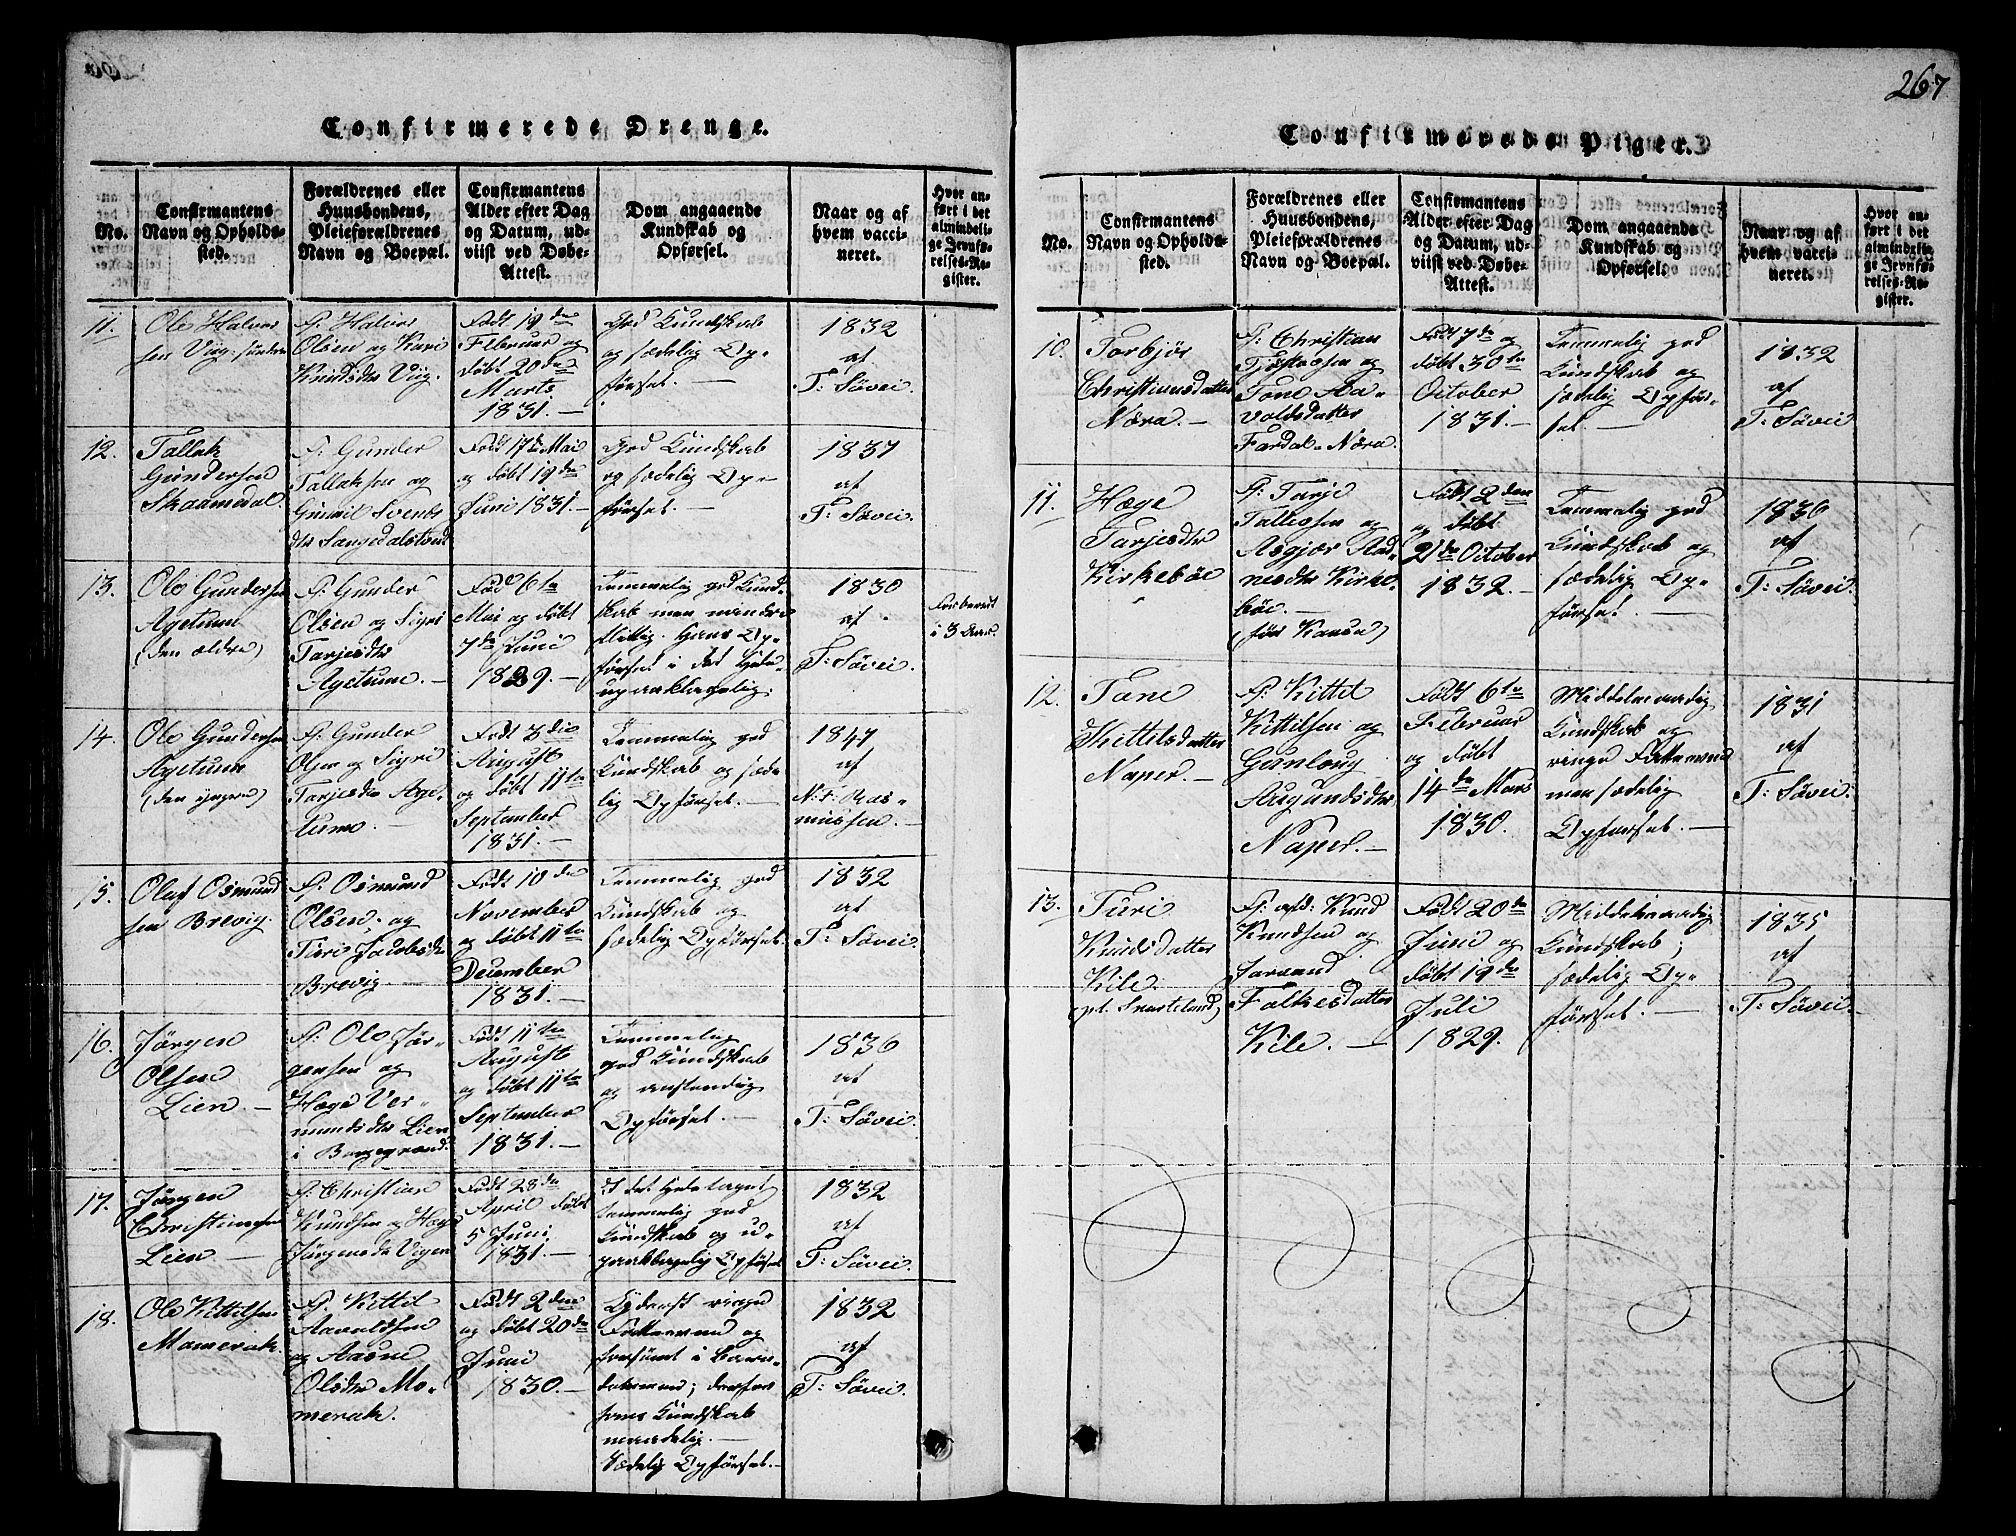 267
Confirmerede Drenge.
No.
Confirmantens
Navn og Opholds-
sted.
Forældrenes eller
Huusbondens,
Pleieforældrenes
Navn og Boepæl.
Confirmantens
Alder efter Dag
og Datum, ud-
viist ved Døbe-
Attest.
Dom angaaende
Kundskab og
Opførsel.
Naar og af
hvem vacci-
neret.
Hvor an-
ført i det
almindeli-
ge Jevnfø-
relses-Re-
gister.
11.
Ole Halvor
sen Viig
F: Halvor
Olsen og Kari
Knudsdtr Viig.
Født 19de
Februar og
døbt 20de
Marts
1831. —
God Kundskab
og sædelig Op-
førsel. —
1832
af
T: Søvei.
12.
Tallak
Gundersen
Skaamedal
F: Gunder
Tallaksen og
Gunild Svends
dtr Langedalstrand
Født 17de Mai
og døbt 19de
Juni 1831. —
God Kundskab
og sædelig Op-
førsel. —
1837
af
T: Søvei.
13.
Ole Gundersen
Agetum
(den ældre)
F: Gunder
Olsen og Sigri
Tarjesdtr
Agetum. —
Fød 6te
Mai og døbt
7de Juni
1829. —
Temmelig god Kund-
skab men mindre
flittig. Hans Op-
førsel i det Hele
upaaklagelig.
1830
af
T: Søvei.
Forberedt
i 3 Aar.
14.
Ole Gundersen
Agetum
(den yngre)
F: Gunder
Olsen og Sigri
Tarjesdtr Age-
tum. —
Født 3die
August
og døbt 11te
September
1831. —
Temmelig god
Kundskab og sæde-
lig Opførsel. —
1847
af
N: F: Ras-
mussen. —
15.
Oluf Osmund
sen Brevig.
F: Osmund
Olsen, og
Turi Jacobsdtr
Brevig. —
Født 10de
November
og døbt 11te
December
1831. —
Temmelig god
Kundskab og
sædelig Opførsel.
1832
af
T: Søvei.
16.
Jørgen
Olsen
Lien. —
F: Ole Jør-
gensen og
Hæge Ver-
mundsdtr Lien
i
Født 11te
August
og døbt 11te
September
1831. —
Temmelig
god Kundskab
og anstændig
Opførsel. —
1836
af
T: Søvei.
17.
Jørgen
Christiansen
Lien —
F: Christian
Knudsen og Hæge
Jørgensdr Vigen
Født 28de
April døbt
5 Juni
1831. —
I det Hele taget
temmelig god
Kundskab og u-
paaklagelig Opførsel
1832
af
T: Søvei.
18.
Ole Kittilsen
Momerak.
F: Kittil
Aavaldsen
og Aasne
Olsdtr Mo-
merak.
Født 2den
og døbt 20de
Juni
1830. —
Yderst ringe
Fatteevne og
forsømt i Barn-
dommen; derfor
hans Kundskab
maadelig. —
Sædelig Opførsel. —
1832
af
T: Søvei.
Confirmerede Piger.
No.
Confirmantens
Navn og Opholds-
sted.
Forældrenes eller
Huusbondens,
Pleieforældrenes
Navn og Boepæl.
Confirmantens
Alder efter Dag
og Datum, ud-
viist ved Døbe-
Attest.
Dom angaaende
Kundskab og
Opførsel.
Naar og af
hvem vacci-
neret.
Hvor an-
ført i det
almindeli-
ge Jevnfø-
relses-Re-
gister.
10.
Torbjør
Christiansdatter
Næra. —
F: Christian
Tjøstolsen og
Tone Aa-
voldsdatter
Fardal-Næra.
Født 7de og
døbt 30te
October
1831. —
Temmelig god
Kundskab og
sædelig Opfør-
sel. —
1832
af
T: Søvei.
11.
Hæge
Tarjesdtr
Kirkebøe
F: Tarje
Tallevsen og
Asgjær Aad-
nesdtr Kirke-
bøe. —
Født 2den
og døbt
21de October
1832. —
Temmelig god
Kundskab og
sædelig Op-
førsel. —
1836
af
T: Søvei.
12.
Tone
Kittilsdatter
Naper. —
F: Kittil
Kittilsen og
Gunlaug
Augundsdtr
Naper. —
Født 6te
Februar
og døbt
14de Mars
1830.
Middelmaadig
Kundskab og
ringe Fatteevne
men sædelig
Opførsel. —
1831
af
T: Søvei.
13.
Turi
Knudsdatter
Kile
F: afd: Knud
Knudsen og
Jorand
Folkesdatter
Kile. —
Født 20de
Juni og
døbt 19de
Juli
1829.
Middelmaadig
Kundskab;
sædelig Op-
førsel. —
1835
af
T: Søvei. —